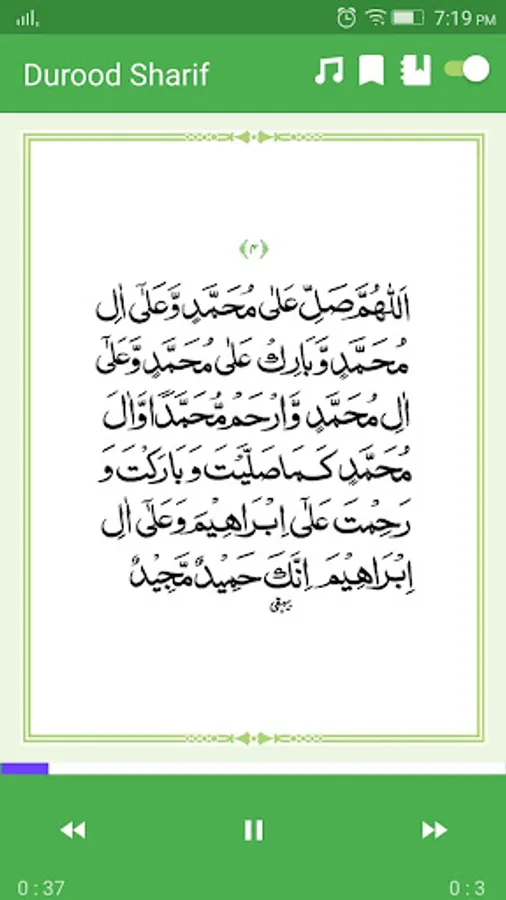 7:19 PM
Durood Sharif
﴿۴﴾
اَللّٰهُمَّ صَلِّ عَلٰى مُحَمَّدٍ وَّعَلٰٓى اٰلِ
مُحَمَّدٍ وَّبَارِكْ عَلٰى مُحَمَّدٍ وَّعَلٰٓى
اٰلِ مُحَمَّدٍ وَّارْحَمْ مُّحَمَّدًا وَّاٰلَ
مُحَمَّدٍ كَمَا صَلَّيْتَ وَبَارَكْتَ وَ
رَحِمْتَ عَلٰٓى اِبْرَاهِيْمَ وَعَلٰٓى اٰلِ
اِبْرَاهِيْمَ اِنَّكَ حَمِيْدٌ مَّجِيْدٌ
بیہقی
0 : 37
0 : 3